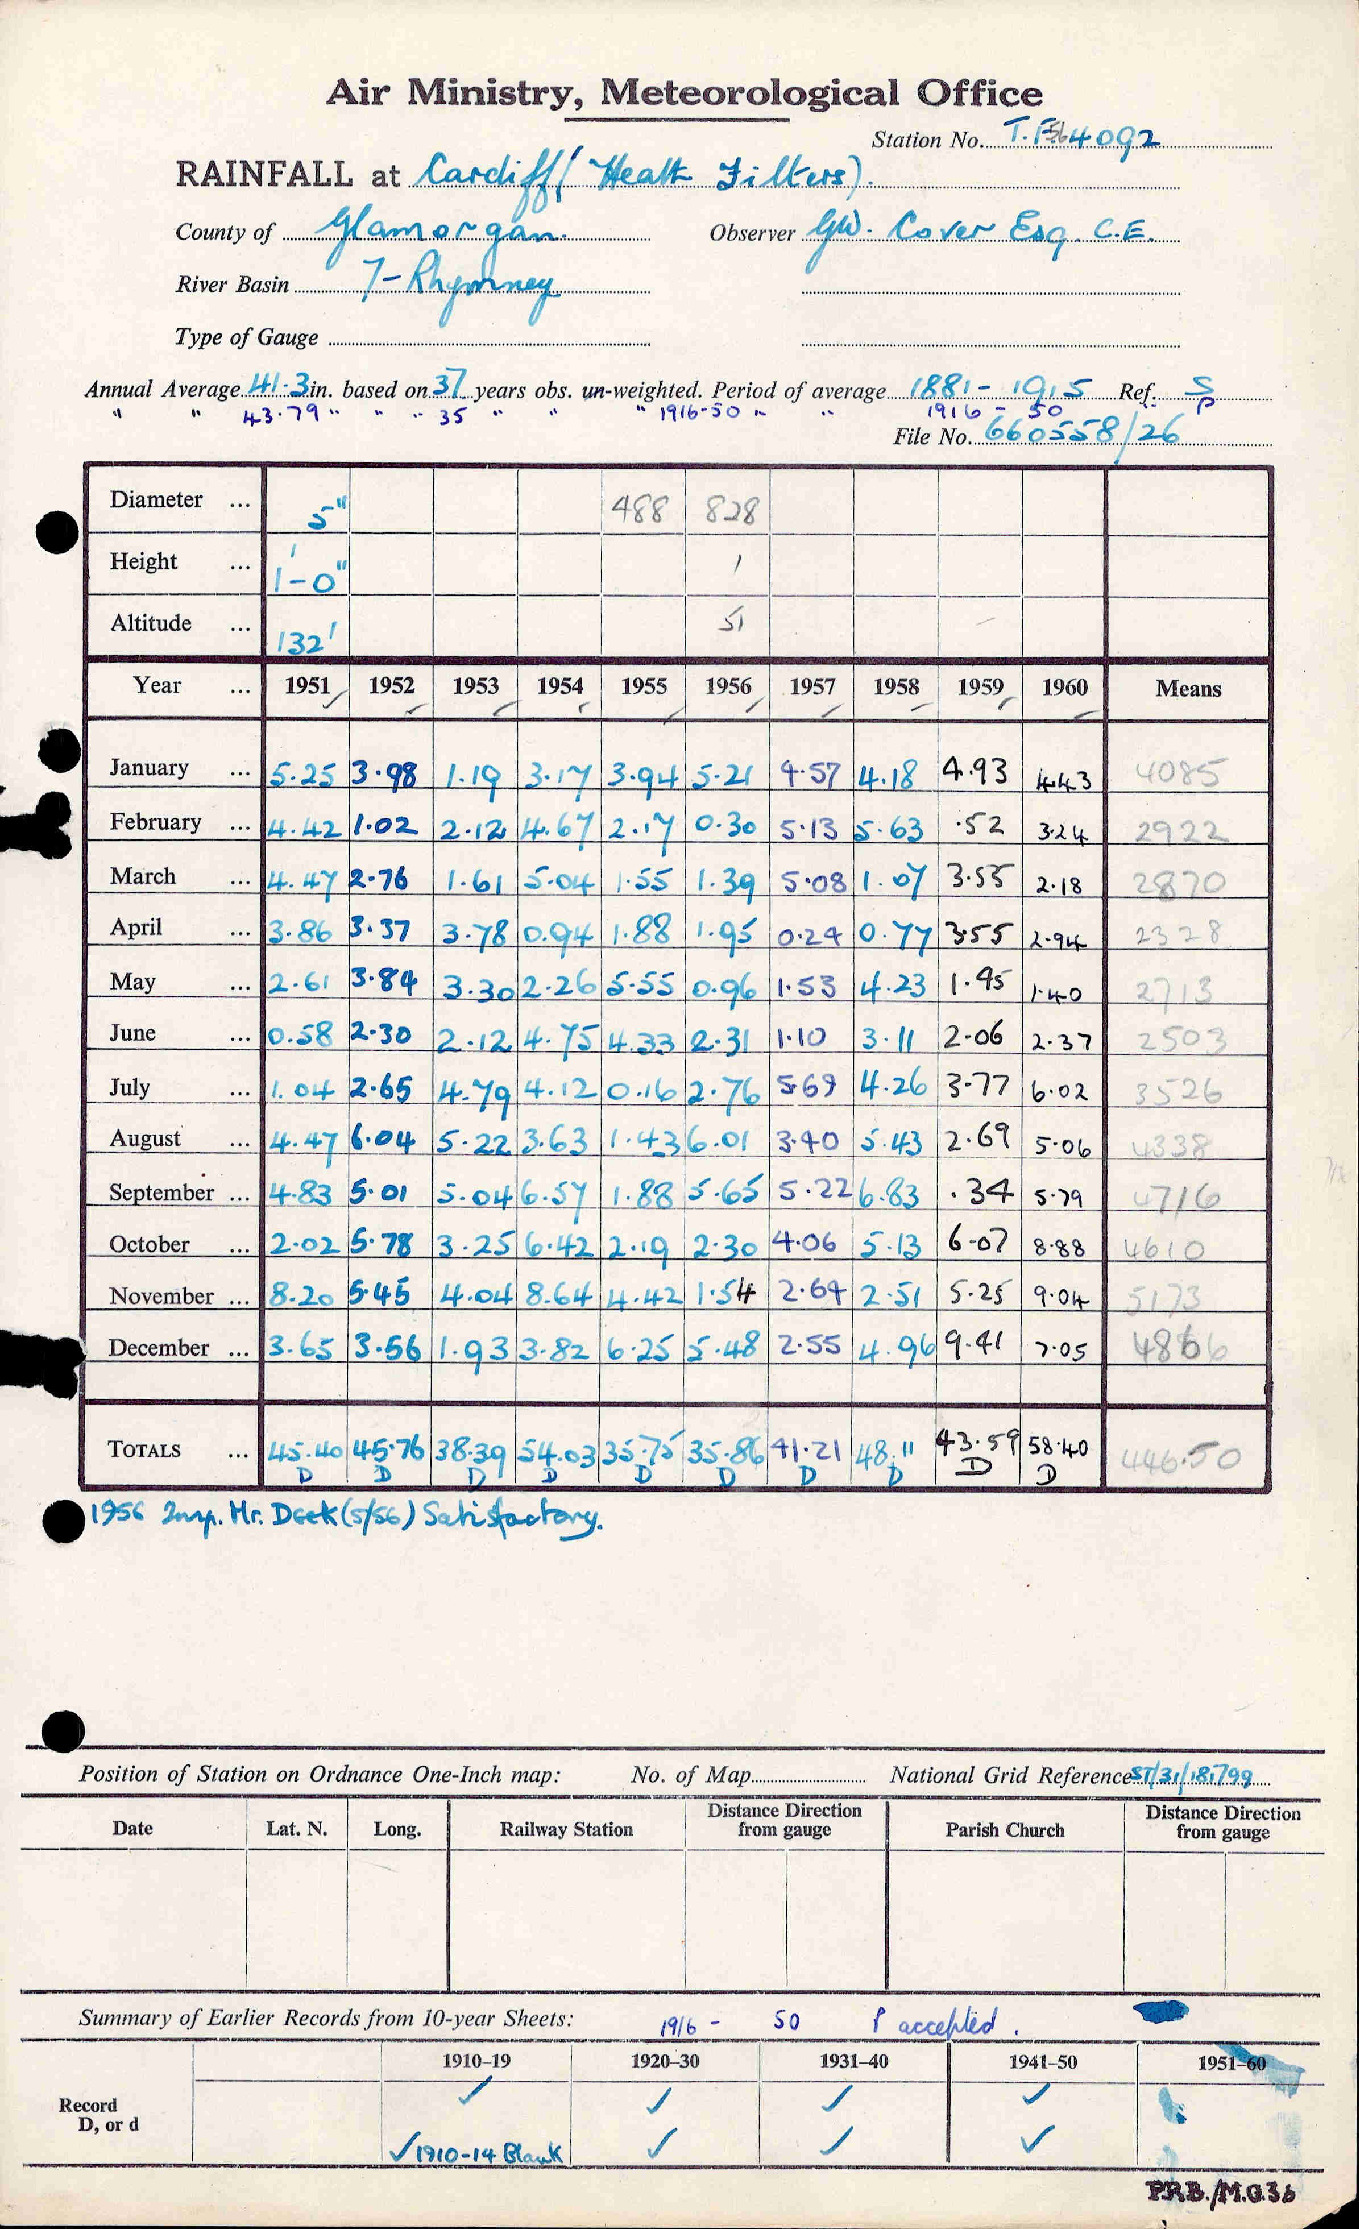 Air Ministry, Meteorological Office
Station No. T.F. 564092
RAINFALL at Cardiff (Heath Filters).
County of Glamorgan. Observer G.W. Cover Esq. C.E.
River Basin 7-Rhymney
Type of Gauge
Annual Average 41.3 in. based on 37 years obs. un-weighted. Period of average 1881-1915 Ref. S/P
" " 43.79 " " " 35 " " " 1916-50 " " 1916-50
File No. 660558/26
Diameter ... 5" 488 828
Height ... 1'-0" 1
Altitude ... 132' 51
Year ... 1951 1952 1953 1954 1955 1956 1957 1958 1959 1960 Means
January ... 5.25 3.98 1.19 3.17 3.94 5.21 4.57 4.18 4.93 4.43 4085
February ... 4.42 1.02 2.12 4.67 2.17 0.30 5.13 5.63 .52 3.24 2922
March ... 4.47 2.76 1.61 5.04 1.55 1.39 5.08 1.07 3.55 2.18 2870
April ... 3.86 3.37 3.78 0.94 1.88 1.95 0.24 0.77 3.55 2.94 2328
May ... 2.61 3.84 3.30 2.26 5.55 0.96 1.53 4.23 1.45 1.40 2713
June ... 0.58 2.30 2.12 4.75 4.33 2.31 1.10 3.11 2.06 2.37 2503
July ... 1.04 2.65 4.79 4.12 0.16 2.76 5.69 4.26 3.77 6.02 3526
August ... 4.47 6.04 5.22 3.63 1.43 6.01 3.40 5.43 2.69 5.06 4338
September ... 4.83 5.01 5.04 6.57 1.88 5.65 5.22 6.83 .34 5.79 4716
October ... 2.02 5.78 3.25 6.42 2.19 2.30 4.06 5.13 6.07 8.88 4610
November ... 8.20 5.45 4.04 8.64 4.42 1.54 2.64 2.51 5.25 9.04 5173
December ... 3.65 3.56 1.93 3.82 6.25 5.48 2.55 4.96 9.41 7.05 4866
TOTALS ... 45.40 45.76 38.39 54.03 35.75 35.86 41.21 48.11 43.59 58.40 446.50
D D D D D D D D D D
1956 Insp. Mr. Deek (5/56) Satisfactory.
Position of Station on Ordnance One-Inch map: No. of Map National Grid Reference ST/31/181799
Date Lat. N. Long. Railway Station Distance Direction from gauge Parish Church Distance Direction from gauge
Summary of Earlier Records from 10-year Sheets: 1916 - 50 P accepted.
1910–19 1920–30 1931–40 1941–50 1951–60
Record ✓ ✓ ✓ ✓
D, or d
✓ 1910-14 Blank ✓ ✓ ✓
P.R.B./M.O.36